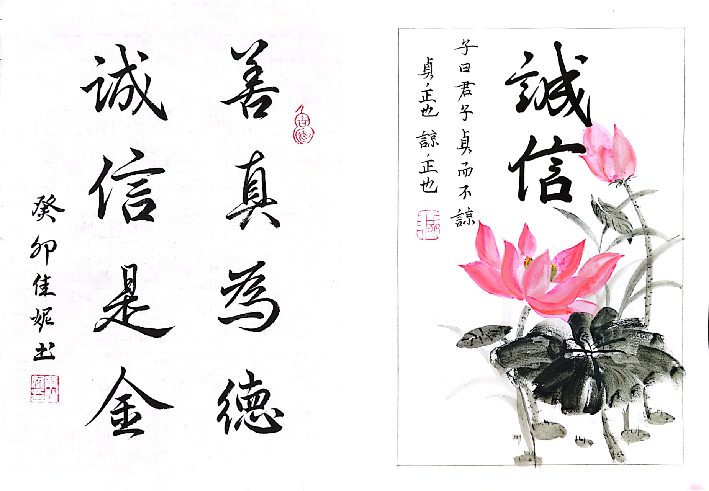 善真為德
诚信是金
癸卯佳妮书
誠信
子曰君子貞而不諒
貞正也諒正也